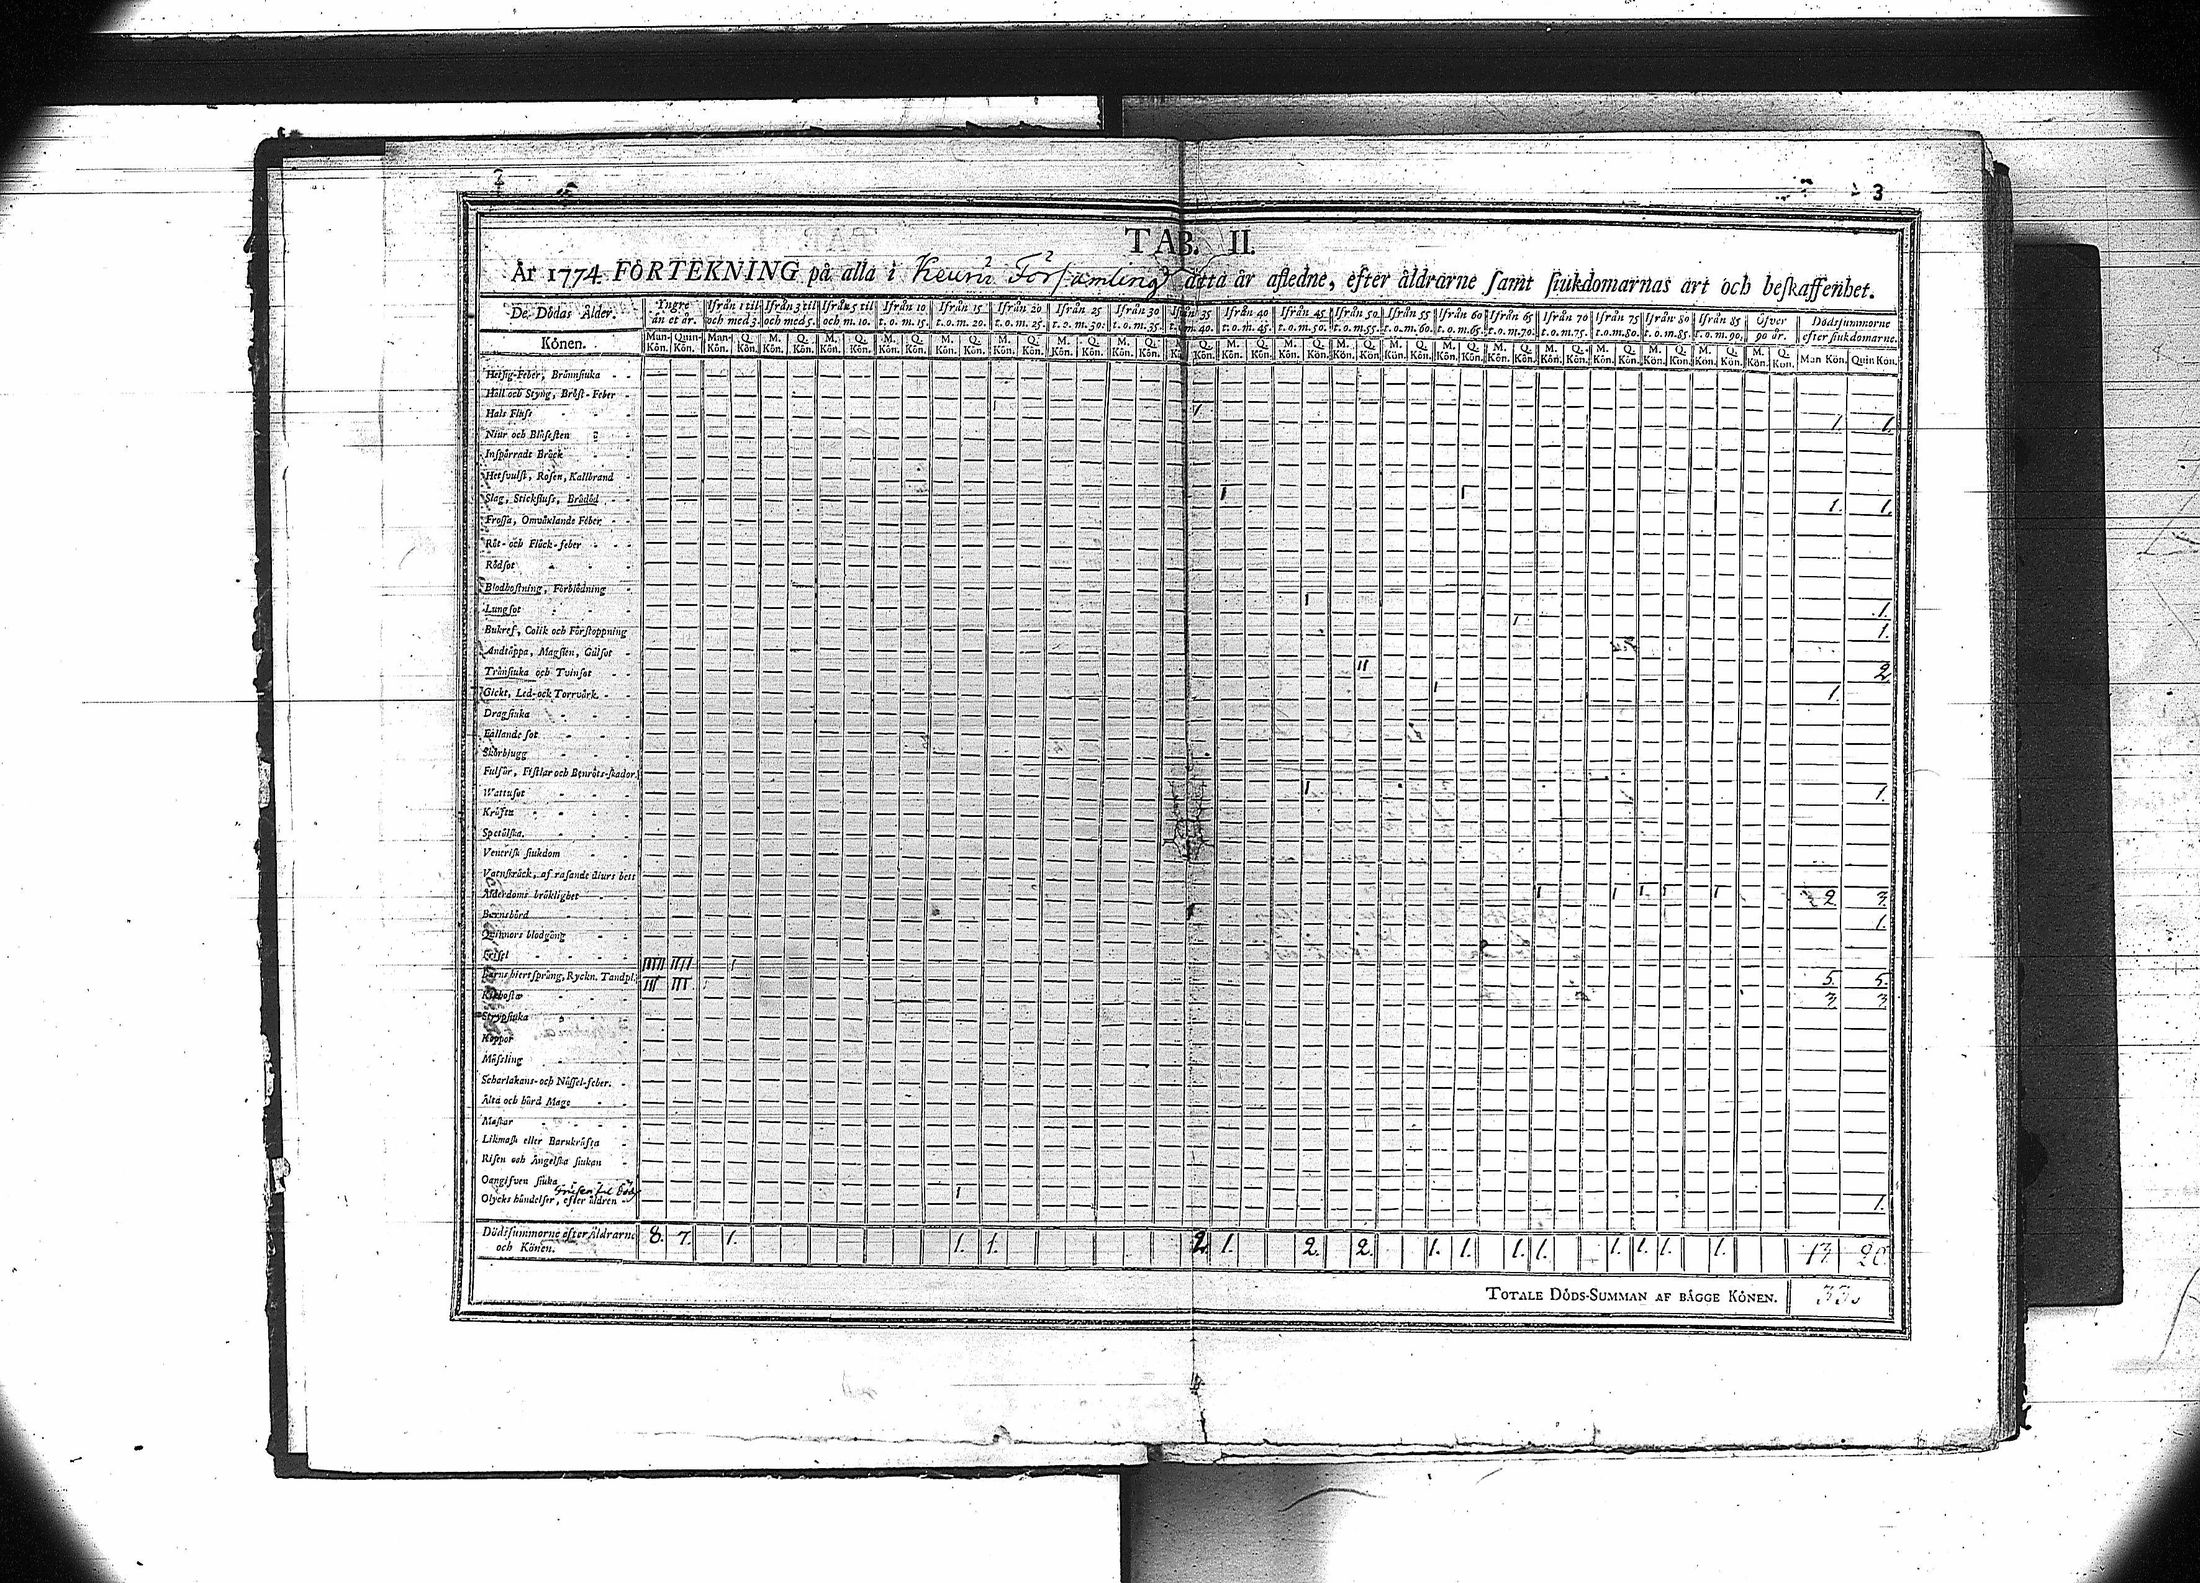 2
3
TAB. II.
År 1774. FÖRTEKNING på alla i Keuru Församling detta år afledne, efter åldrarne samt siukdomarnas art och beskaffenhet.
De Dödas Ålder. Yngre än et år. Ifrån 1 til och med 3. Ifrån 3 til och med 5. Ifrån 5 til och m. 10. Ifrån 10 t. o. m. 15. Ifrån 15 t. o. m. 20. Ifrån 20 t. o. m. 25. Ifrån 25 t. o. m. 30. Ifrån 30 t. o. m. 35. Ifrån 35 t. o. m. 40. Ifrån 40 t. o. m. 45. Ifrån 45 t. o. m. 50. Ifrån 50 t. o. m. 55. Ifrån 55 t. o. m. 60. Ifrån 60 t. o. m. 65. Ifrån 65 t. o. m. 70. Ifrån 70 t. o. m. 75. Ifrån 75 t. o. m. 80. Ifrån 80 t. o. m. 85. Ifrån 85 t. o. m. 90. Öfver 90 år. Dödssummorne efter siukdomarne.
Könen. Man-Kön. Quin-Kön. Man-Kön. Q. Kön. M. Kön. Q. Kön. M. Kön. Q. Kön. M. Kön. Q. Kön. M. Kön. Q. Kön. M. Kön. Q. Kön. M. Kön. Q. Kön. M. Kön. Q. Kön. Q. Kön. M. Kön. Q. Kön. M. Kön. Q. Kön. M. Kön. Q. Kön. M. Kön. Q. Kön. M. Kön. Q. Kön. M. Kön. Q. Kön. M. Kön. Q. Kön. M. Kön. Q. Kön. M. Kön. Q. Kön. M. Kön. Q. Kön. M. Kön. Q. Kön. Man Kön. Quin Kön.
Hetsig-Feber, Brännsiuka
Håll och Styng, Bröst-Feber
Hals Fluss 1 1
Niur och Blåsesten
Inspärradt Bråck
Hetsvulst, Rosen, Kallbrand
Slag, Stickfluss, Brådöd 1 1 1. 1.
Frossa, Omväxlande Feber
Röt- och Fläck-feber
Rödsot
Blodhostning, Förblödning
Lungsot 1 1.
Bukref, Colik och Förstoppning 1 1.
Andtäppa, Magsten, Gulsot
Trånsiuka och Tvinsot 11 2
Gickt, Led-ock Torrvärk 1 1.
Dragsiuka
Fallande sot
Skörbiugg
Fulsår, Fistlar och Benröts-skador
Wattusot 1 1.
Kräfta
Spetälska
Venerisk siukdom
Vatnskräck, af rasande diurs bett
Ålderdoms bräklighet 1 1 1 1 1 2. 3.
Barnsbörd 1.
Quinnors blodgång
Frisel
Barns hiertsprång, Ryckn. Tandpl. 11111 1111 1 5. 5.
Kikhosta 111 111 3 3
Strypsiuka
Koppor
Mässling
Scharlakans- och Nässel-feber.
Älta och hård Mage
Maskar
Likmask eller Barnkräfta
Risen och Ängelska siukan
Oangifven siuka
Olycks händelser, efter åldren 1 1.
Dödssummorne efter Åldrarne och Könen. 8. 7. 1. 1. 1. 2. 1. 2. 2. 1. 1. 1. 1. 1. 1. 1. 1. 13 20.
TOTALE DÖDS-SUMMAN AF BÄGGE KÖNEN. 33.